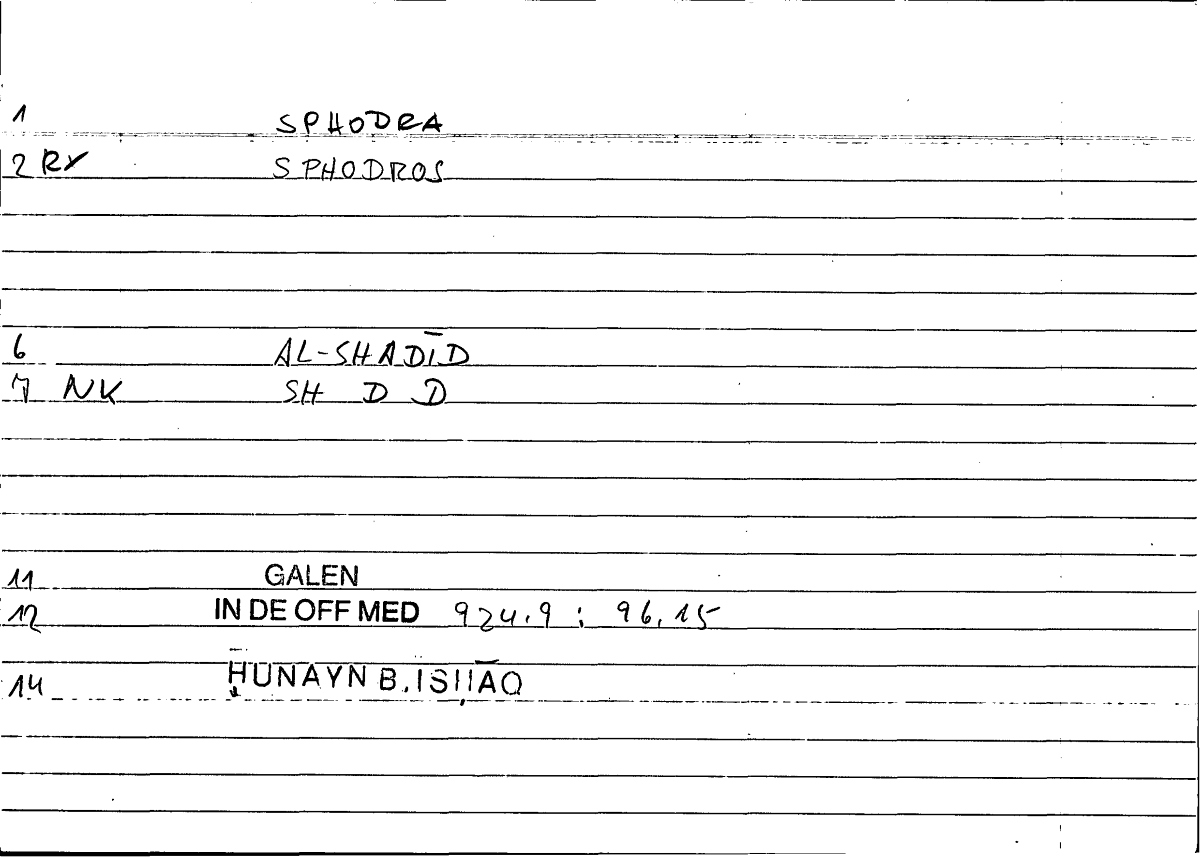 1 SPHODRA
2 RX SPHODROS
6 AL-SHADĪD
7 NK SH D D
11 GALEN
12 IN DE OFF MED 924.9 : 96.15
14 ḤUNAYN B. ISḤĀQ